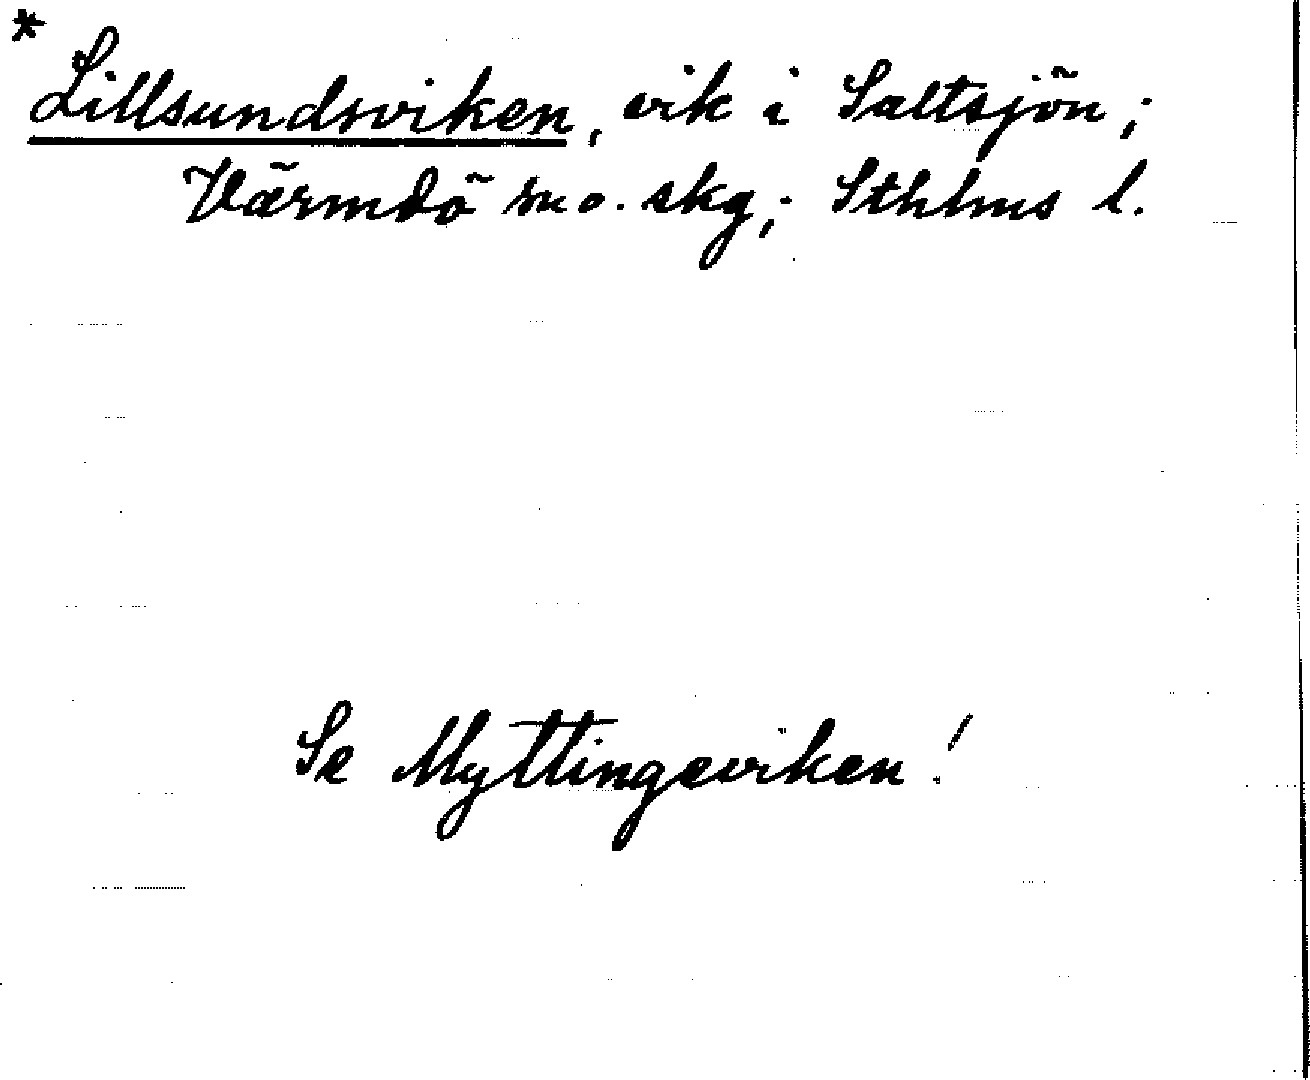 *
Lillsundsviken, vik i Saltsjön;
Värmdö sn o. skg; Sthlms l.
Se Myttingeviken!